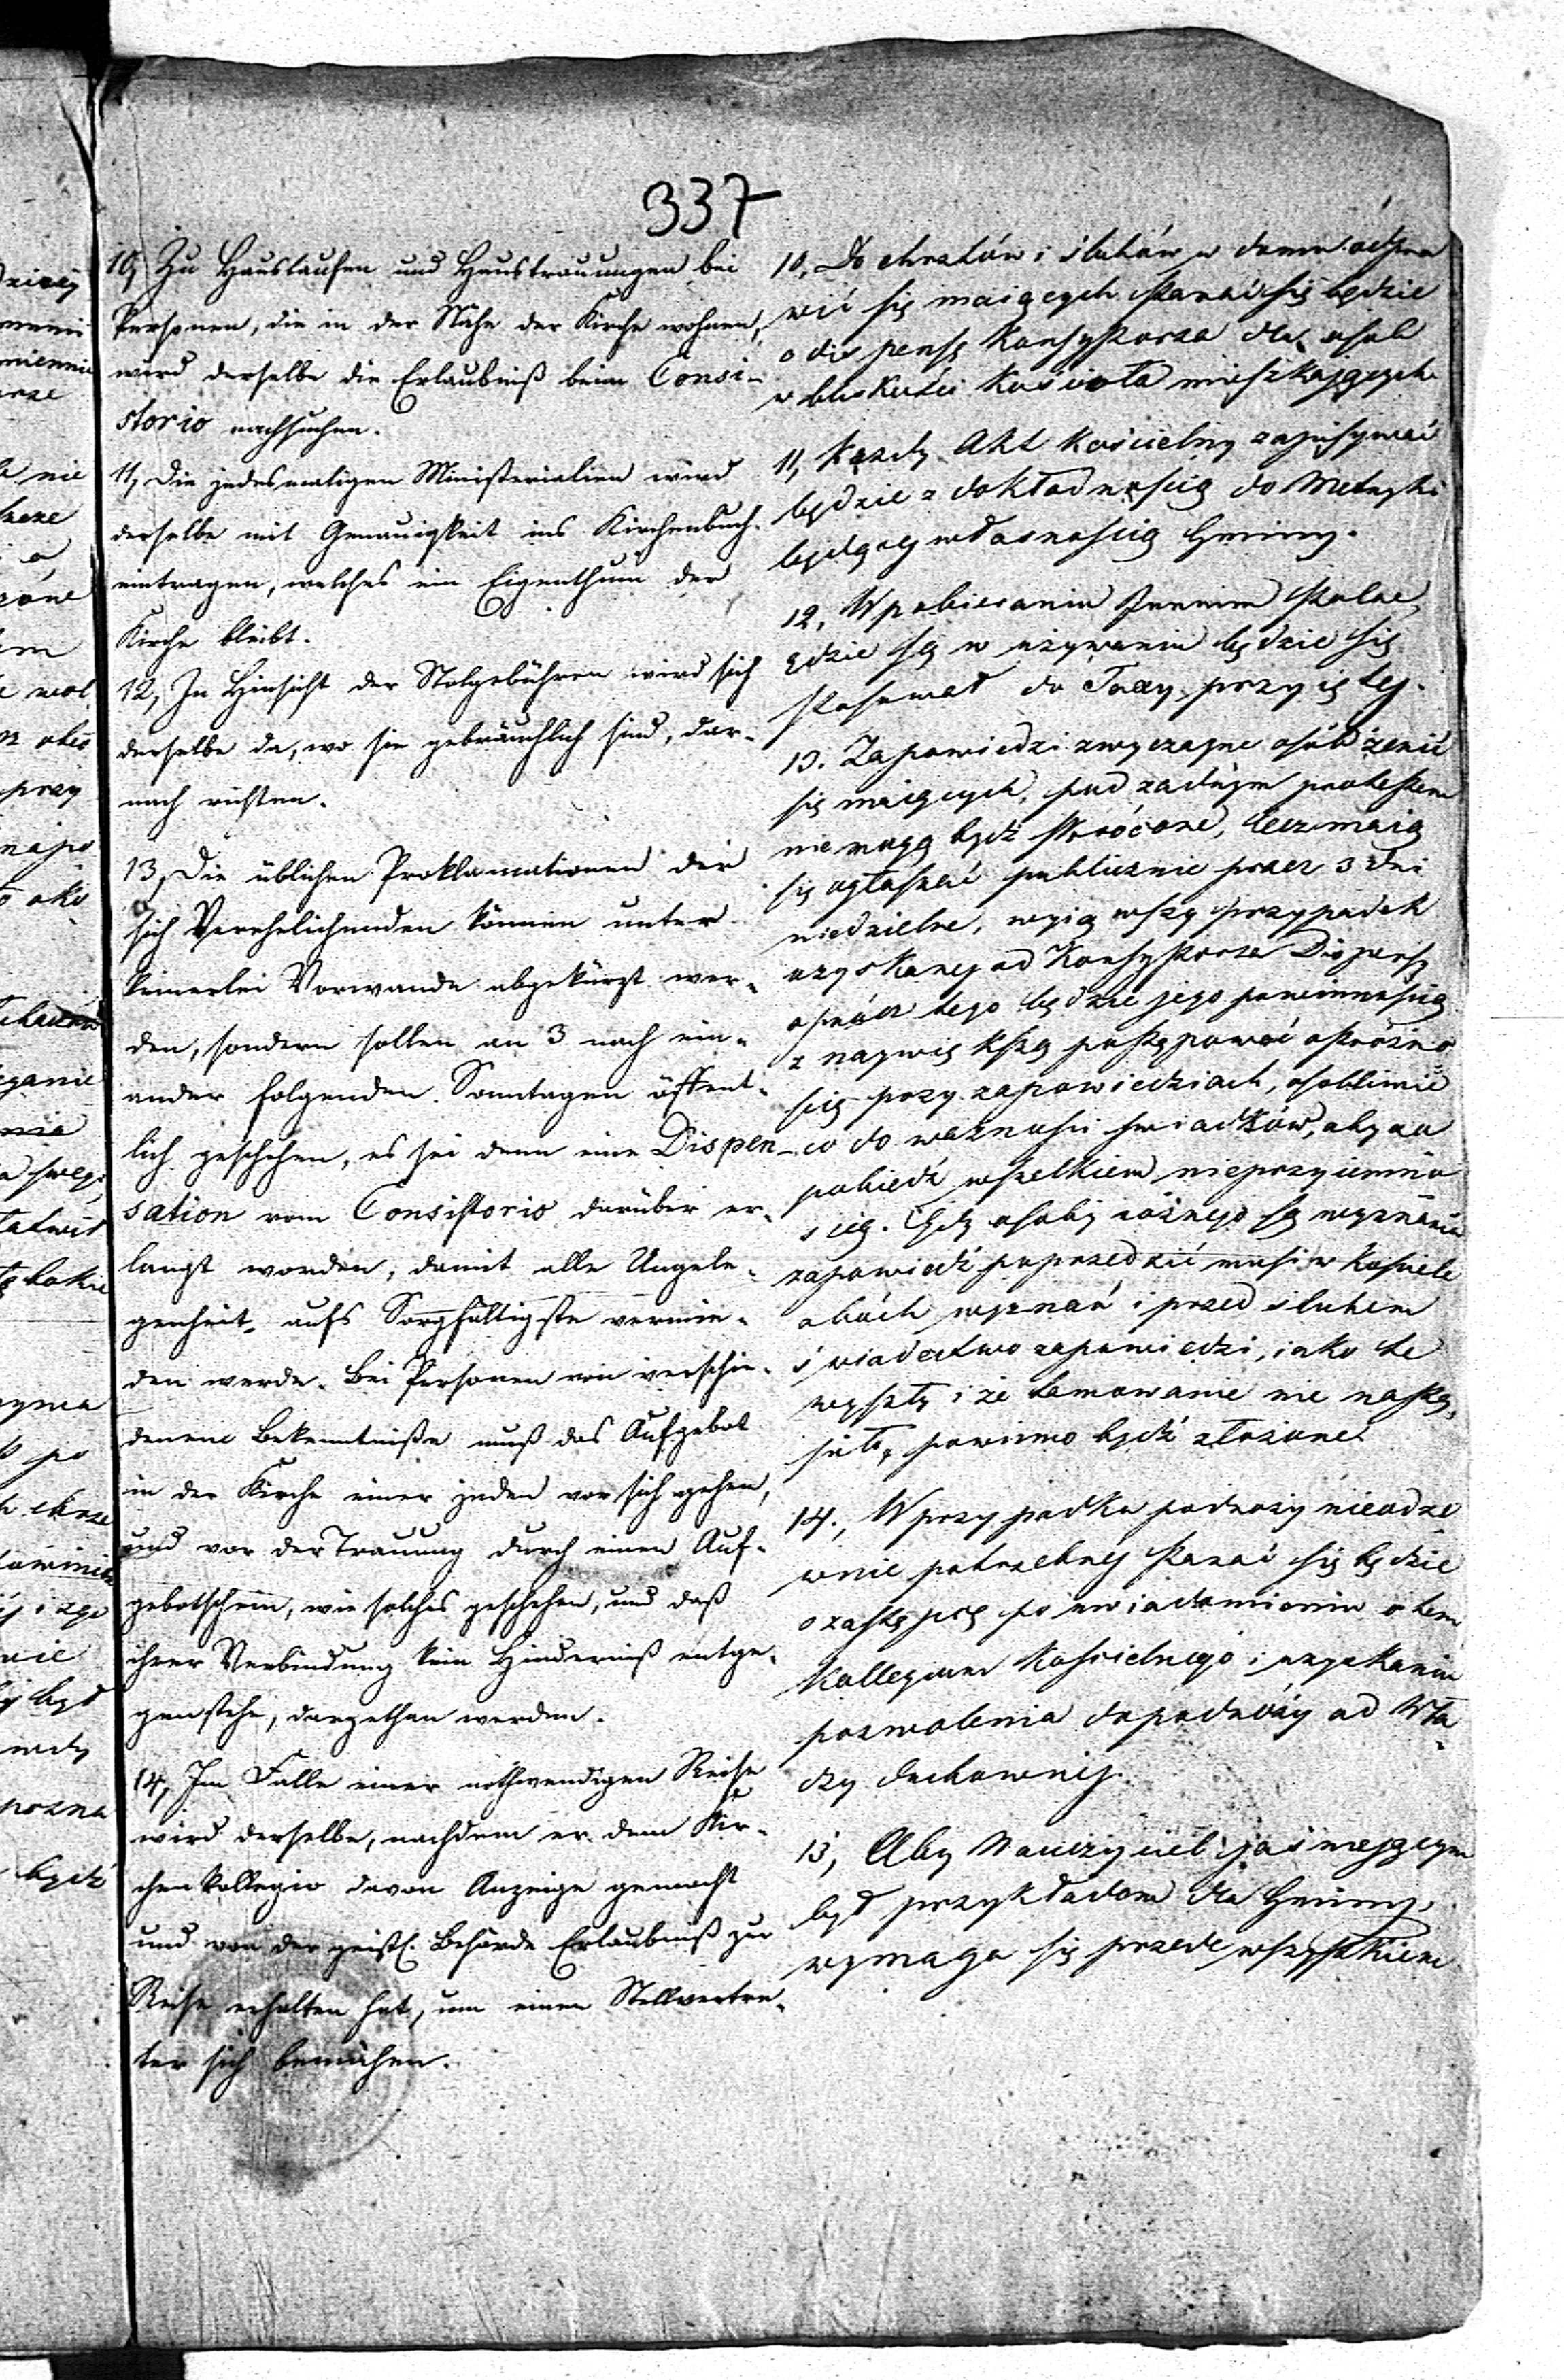 337
10, Zu Haustaufen und Haustrauungen bei
Personen, die in der Nähe der Kirche wohnen,
wird derselbe die Erlaubniß beim Consi-
storio nachsuchen.
11, Die jedesmaligen Ministerialien wird
derselbe mit Genauigkeit ins Kirchenbuch
eintragen, welches ein Eigenthum der
Kirche bleibt.
12, In Hinsicht der Stolgebühren wird sich
derselbe da, wo sie gebräuchlich sind, dar-
nach richten.
13, Die üblichen Proklamationen der
sich Verehelichenden können unter
keinerlei Vorwande abgekürzt wer-
den, sondern sollen an 3 nach ein-
ander folgenden Sonntagen öffent-
lich geschehen, es sei denn eine Dispen-
sation vom Consistorio darüber er-
langt worden, damit alle Ungele-
genheit aufs Sorgfältigste vermie-
den werde. Bei Personen von verschie-
denem Bekenntniße muß das Aufgebot
in der Kirche einer jeden vor sich gehen,
und vor der Trauung durch einen Auf-
gebotschein, wie solches geschehen, und daß
ihrer Verbindung kein Hinderniß entge-
genstehe, dargethan werden.
14, Im Falle einer nothwendigen Reise
wird derselbe, nachdem er dem Kir-
chenkollegio davon Anzeige gemacht
und von der geistl. Behörde Erlaubniß zur
Reise erhalten hat, um einen Stellvertre-
ter sich bemühen.
10, Do chrztów i slubów w domu odpra
wić się maiących starać się będzie
o dispensę Konsystorza dla osob
w bliskości Kościoła mieszkających
11, Kazdy Akt kościelny zapisywać
będzie z dokładnością do Metryki
będącej własnością Gminy.
12, W pobieraniu Jurium stolae,
gdzie są w używaniu będzie się
stosował do Taxy przyiętej.
13. Zapowiedzi zwyczajne osób żenić
się maiących, pod zadnym protestem
nie mogą bydź skrócone, lecz maią
się ogłaszać publicznie przez 3 dni
niedzielne, wyiąwszy przypadek
uzyskanej od Konsystorza Dispensy
oprócz tego będzie jego powinnością
z największą postępować ostrożno
ścią przy zapowiedziach, osobliwie
co do ważności swiadków, aby za
pobiedz wszelkiem nieprzyiemno
sciom. Gdy osoby różnego są wyznania
zapowiedź poprzedzić musi w Kościele
obóch wyznań i przed slubem
świadectwo zapowiedzi, iako te
wyszły i że tamowanie nie nastą
piło, powinno bydź złożone.
14., W przypadku podroży nieodze
wnie potrzebnej starać się będzie
o zastępcę po uwiadomieniu o tem
Kollegium Kościelnego i uzyskaniu
pozwolenia do podróży od Wła
dzy duchownej.
15, Aby Nauczyciel
był przykładem dla Gminy,
wymaga się przede wszystkiem